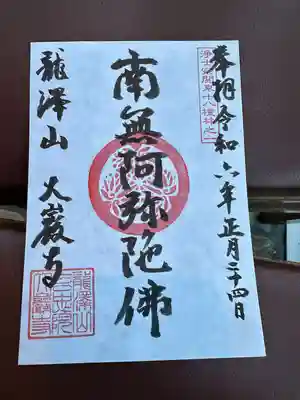 奉拝 令和六年正月二十四日
浄土宗関東十八檀林之一
南無阿弥陀佛
龍澤山 大巖寺
龍澤山
大巖寺